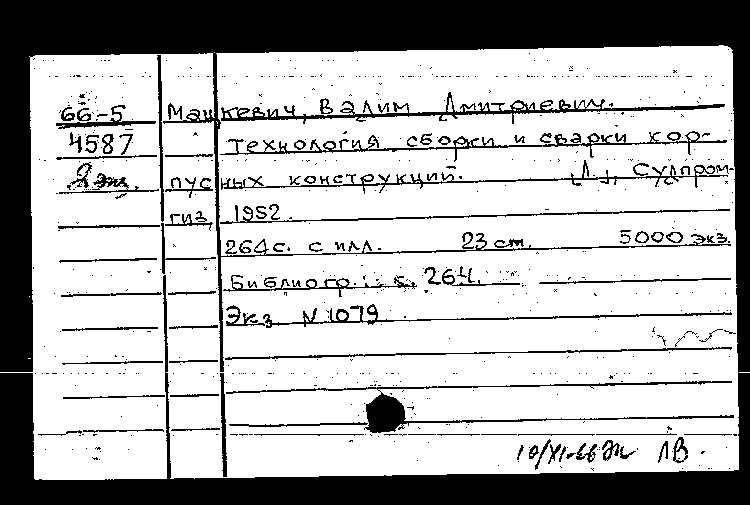 66-5 Мацкевич, Вадим Дмитриевич.
4587 Технология сборки и сварки кор-
2 экз. пусных конструкций. [Л.], Судпром-
гиз, 1952.
264 с. с илл. 23 см. 5000 экз.
Библиогр.: с. 264.
Экз. N 1079
10/XI-66 ЛВ.